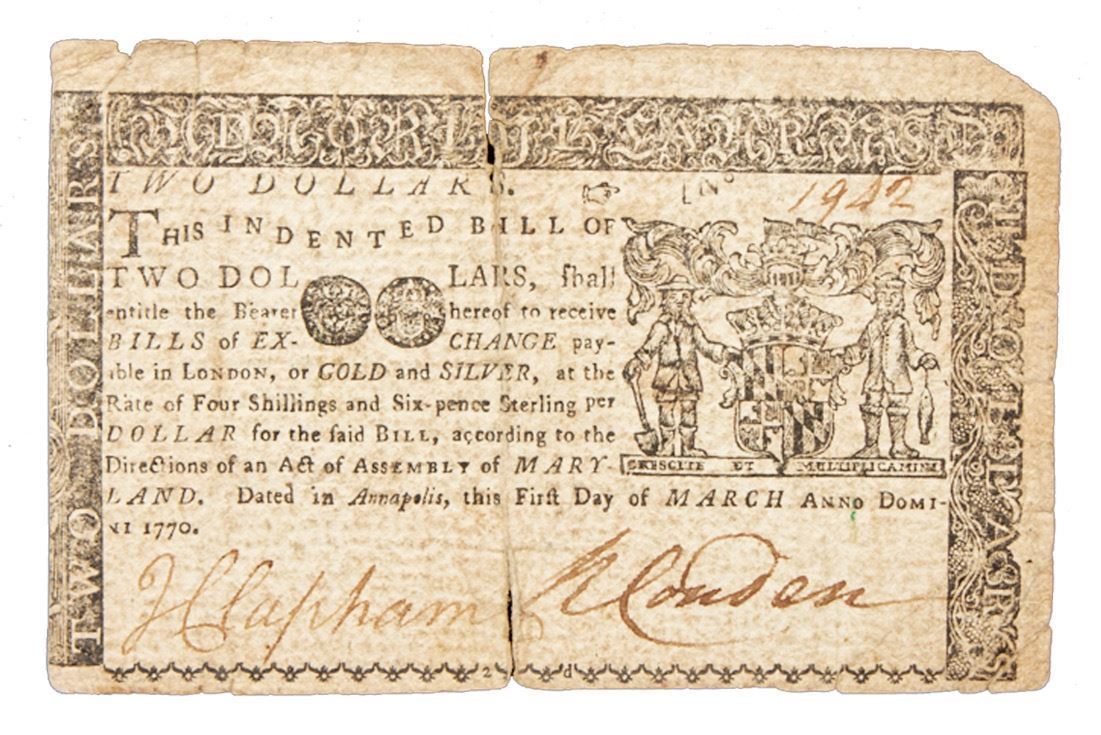 TWO DOLLARS. [No 1942
THIS INDENTED BILL OF
TWO DOLLARS, ſhall
entitle the Bearer hereof to receive
BILLS of EXCHANGE pay-
able in LONDON, or GOLD and SILVER, at the
Rate of Four Shillings and Six-pence Sterling per
DOLLAR for the ſaid BILL, according to the
Directions of an Act of ASSEMBLY of MARY-
LAND. Dated in Annapolis, this Firſt Day of MARCH ANNO DOMI-
NI 1770.
CRESCITE ET MULTIPLICAMINI
J Clapham R Couden
2 d
TWO DOLLARS